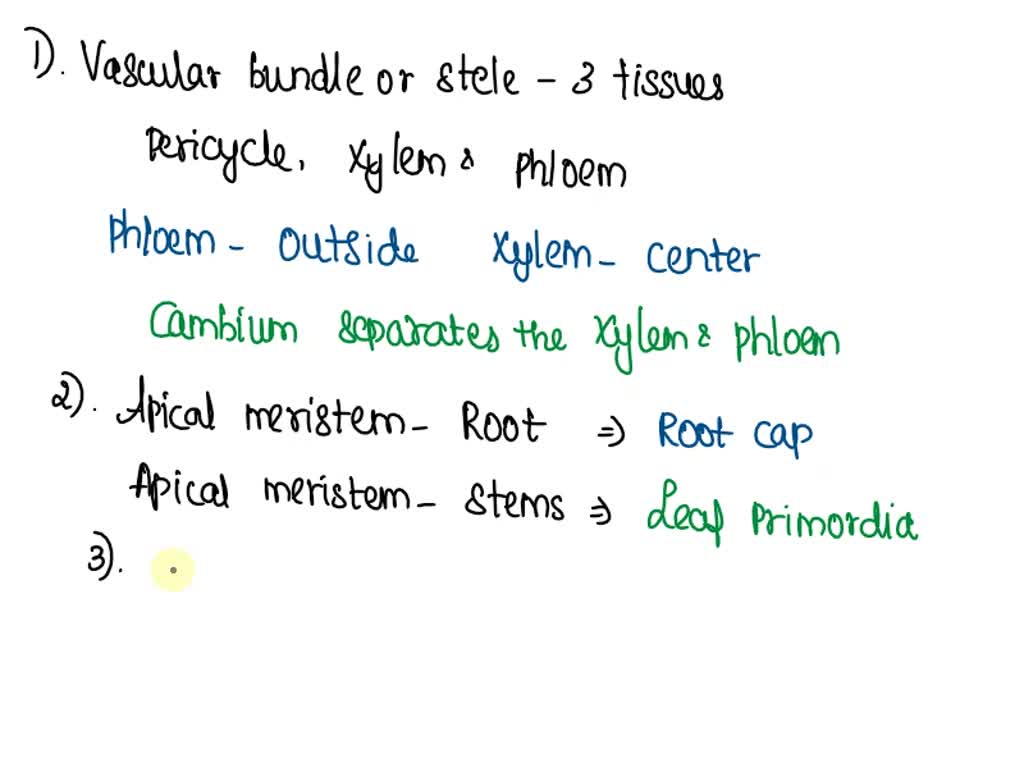 1). Vascular bundle or stele - 3 tissues
Pericycle, Xylem & Phloem
Phloem - outside Xylem - center
Cambium separates the Xylem & phloem
2). Apical meristem - Root ⇒ Root cap
Apical meristem - stems ⇒ Leaf primordia
3).